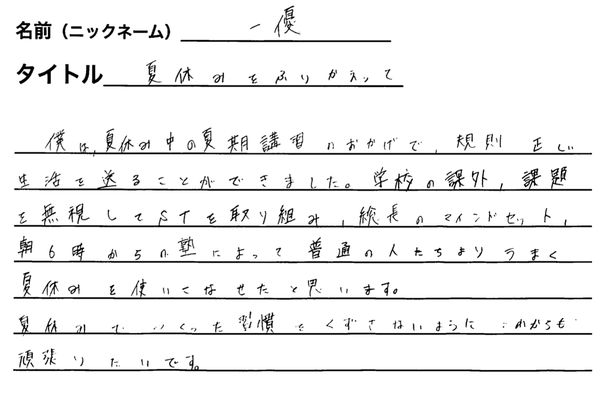 名前（ニックネーム） 一優
タイトル 夏休みをふりかえって
僕は、夏休み中の夏期講習のおかげで、規則正しい
生活を送ることができました。学校の課外、課題
を無視してSTを取り組み、総長のマインドセット、
朝6時からの塾によって普通の人たちよりうまく
夏休みを使いこなせたと思います。
夏休みでつくった習慣をくずさないようにこれからも
頑張りたいです。